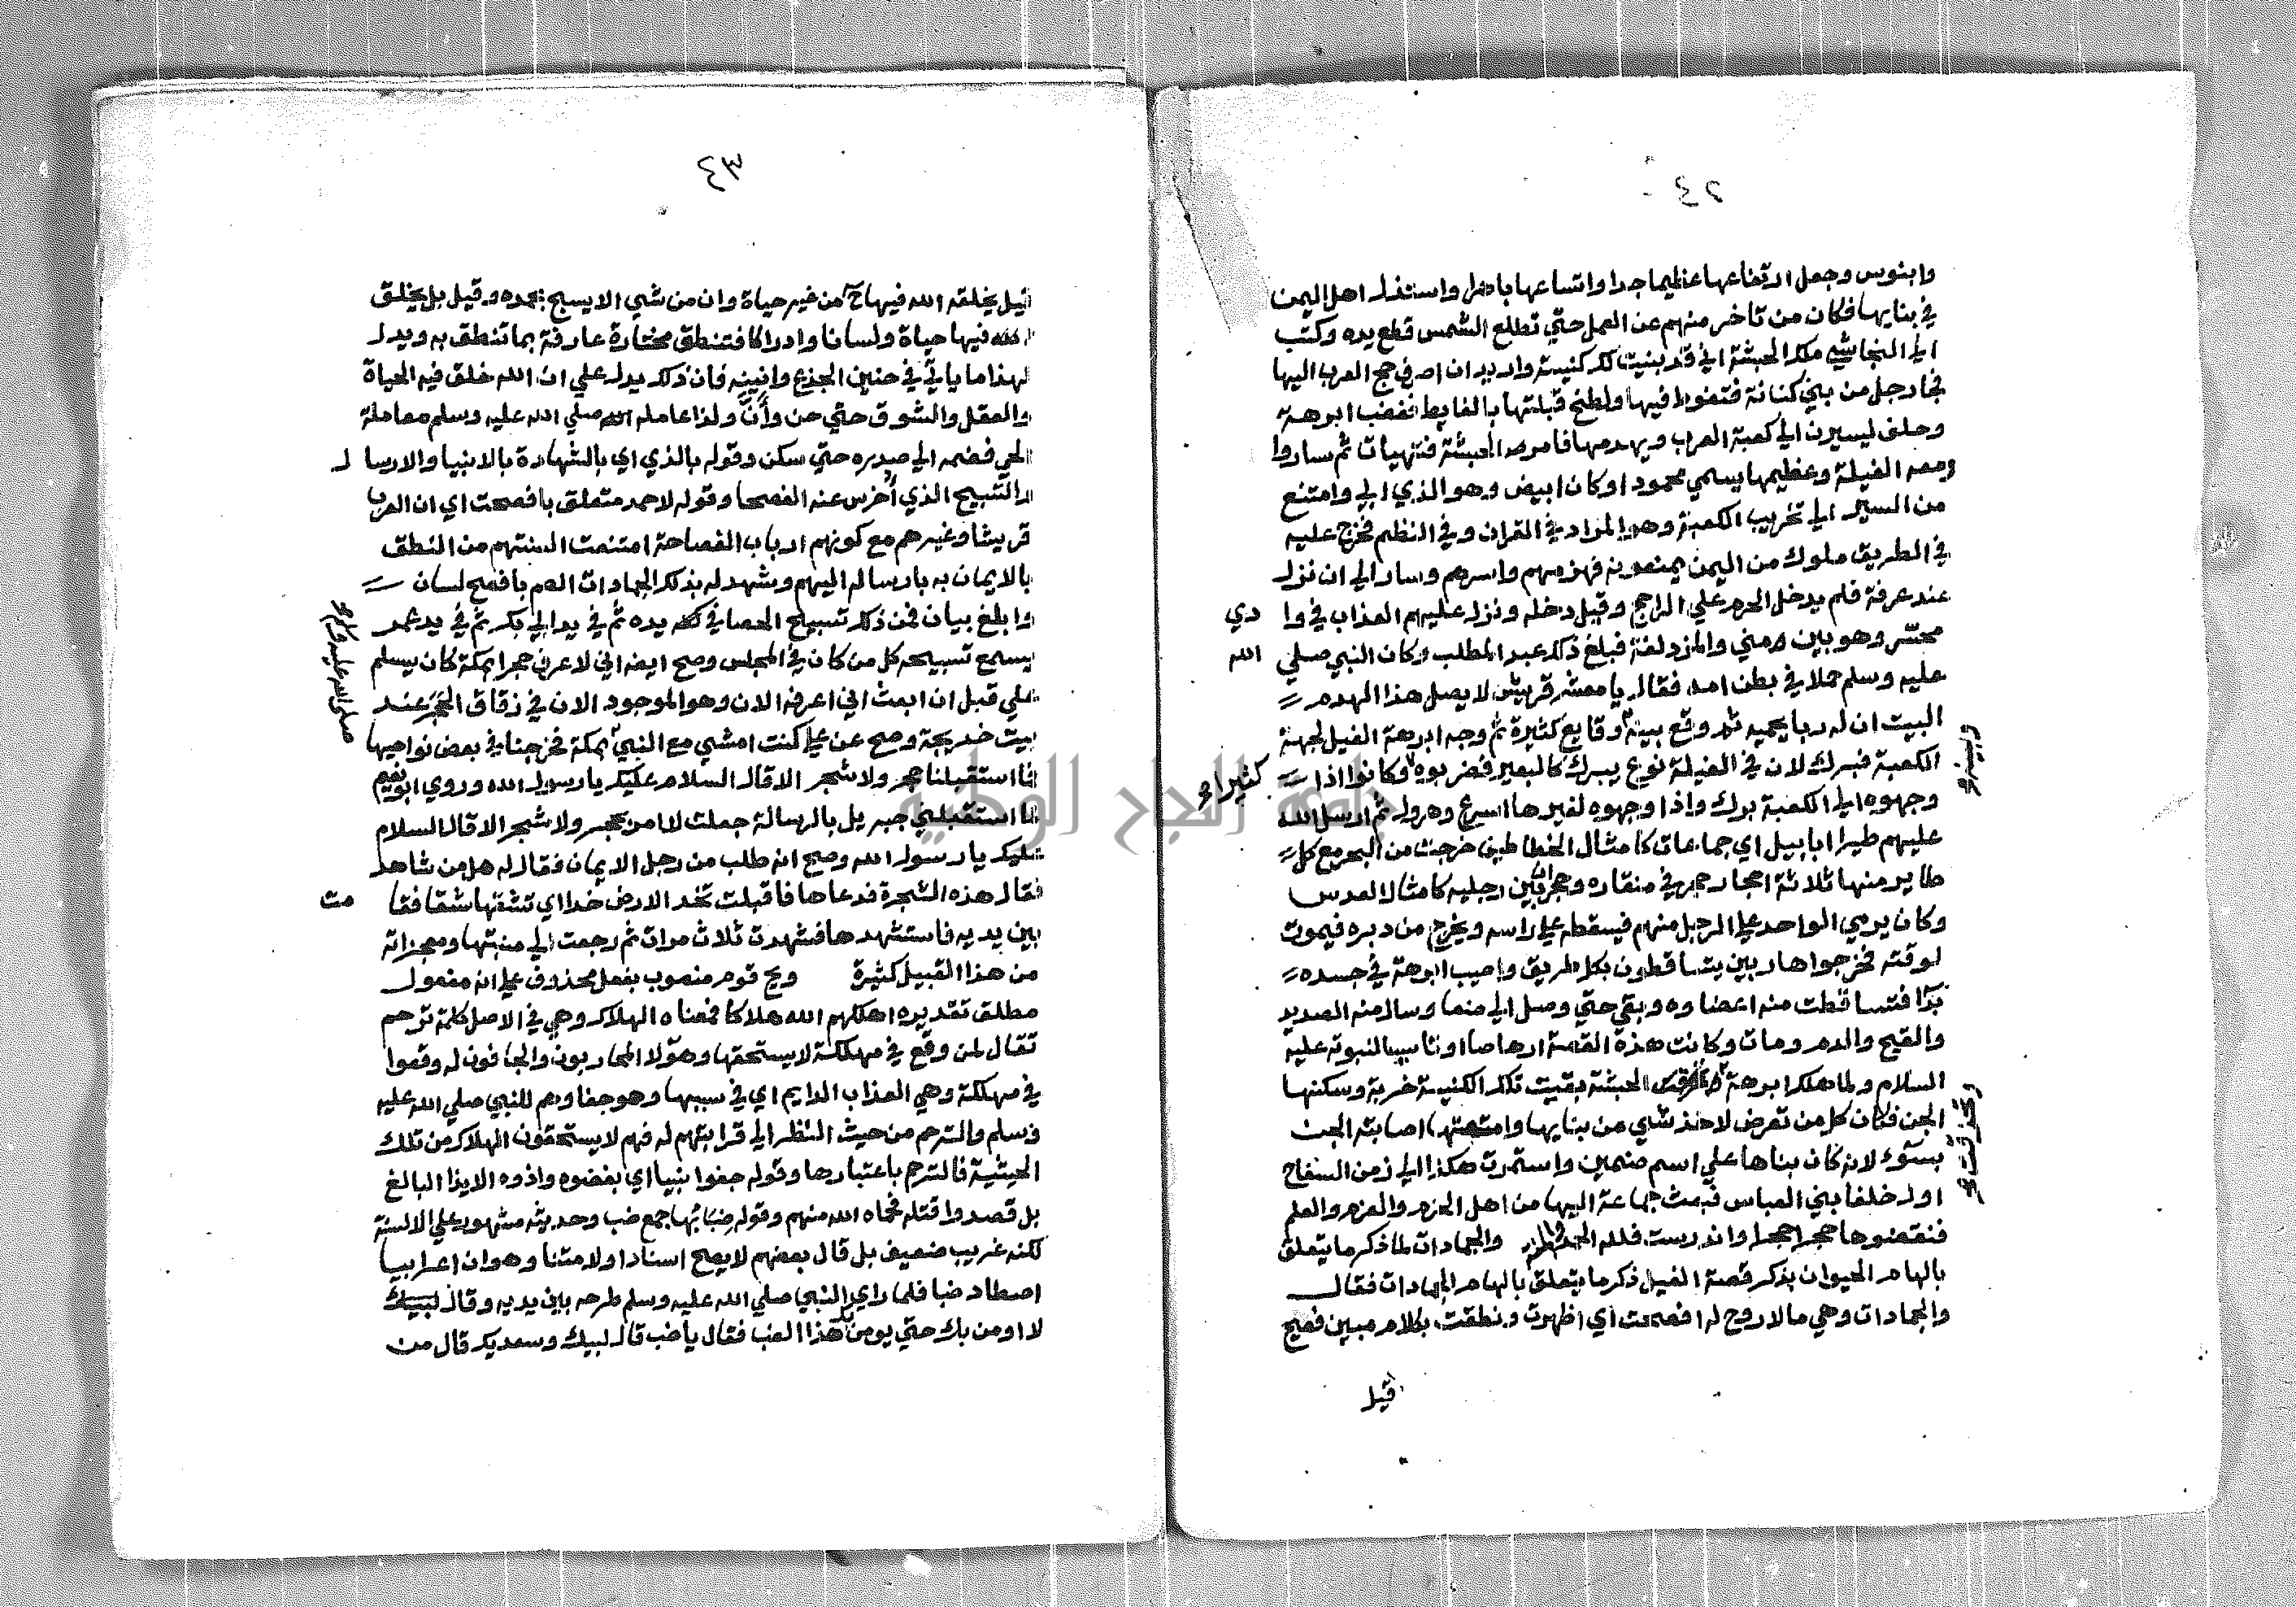 ٢٤
وابنوس وجعل ارتفاعها عظيما جدا واتساعها باهرا واستذل اهل اليمن
في بنايها فكان من تاخر منهم عن العمل حتي تطلع الشمس قطع يده وكتب
الي النجاشي ملك الحبشة اني قد بنيت لك كنيسة واريد ان اصرف حج العرب اليها
فجا رجل من بني كنانة فتغوط فيها ولطخ قبلتها بالغايط فغضب ابرهة
وحلف ليسيرن الي كعبة العرب ويهدمها فامر الحبشة فتهيات ثم ساروا
ومعه الفيلة وعظيمها يسمي محمودا وكان ابيض وهو الذي ابي وامتنع
من السير الي تخريب الكعبة وهو المراد في القران وفي النظم فخرج عليه
في الطريق ملوك من اليمن يمنعونه فهزمهم واسرهم وسار الي ان نزل
عند عرفة فلم يدخل الحرم علي الراجح وقيل دخله ونزل عليهم العذاب في وا دي
محسر وهو بين مني والمزدلفة فبلغ ذلك عبد المطلب وكان النبي صلي الله
عليه وسلم حملا في بطن امه فقال يا معشر قريش لا يصل هذا الهدم
البيت ان له ربا يحميه ثم وقع بينه وقايع كثيرة ثم وجه ابرهة الفيل لجهة
الكعبة فبرك لان في الفيلة نوع يبرك كالبعير فضربوه وكانوا اذا
كثيرا
وجهوه الي الكعبة برك واذا وجهوه لغيرها اسرع وهرول ثم ارسل الله
عليهم طيرا ابابيل اي جماعات كامثال الخطاطيف خرجت من البحر مع كل
طاير منها ثلاثة احجار حجر في منقاره وحجران بين رجليه كامثال العدس
وكان يرمي الواحد علي الرجل منهم فيسقط علي راسه ويخرج من دبره فيموت
لوقته فخرجوا هاربين يتساقطون بكل طريق واصيب ابرهة في جسده
بدا فتساقطت منه اعضاوه وبقي حتي وصل الي صنعا وسال منه الصديد
والقيح والدم ومات وكانت هذه القصة ارهاصا وتاسيسا لنبوته عليه
السلام ولما هلك ابرهة الحبشة بقيت تلك الكنيسة خربة وسكنها
الجن فكان كل من تعرض لاخذ شي من بنايها وامتعتها اصابته الجن
بسوء لانه كان بناها علي اسم صنمين واستمرت هكذا الي زمن السفاح
اول خلفا بني العباس فبعث جماعة اليها من اهل الحزم والعزم والعلم
فنقضوها حجرا حجرا واندرست فلله الحمد والجمادات لما ذكر ما يتعلق
بالهام الحيوان بذكر قصة الفيل ذكر ما يتعلق بالهام الجمادات فقال
والجمادات وهي ما لا روح له افصحت اي اظهرت ونطقت بكلام مبين فصيح
قيل
٤٣
قيل يخلقه الله فيها من غير حياة وان من شي الا يسبح بحمده وقيل بل يخلق
الله فيها حياة ولسانا وادراكا فتنطق مختارة عارفة بما تنطق به ويدل
لهذا ما ياتي في حنين الجذع وانينه فان ذلك يدل علي ان الله خلق فيه الحياة
والعقل والشوق حتي حن وأنّ ولذا عامله صلي الله عليه وسلم معاملة
الحي فضمه الي صدره حتي سكن وقوله بالذي اي بالشهادة بالانبيا والارسا ل
والتسبيح الذي أخرس عنه الفصحا وقوله لاحمد متعلق بافصحت اي ان العرب
قريشا وغيرهم مع كونهم ارباب الفصاحة امتنعت السنتهم من النطق
بالايمان به بارساله اليهم وشهد له بذلك الجمادات الصم بافصح لسان
وابلغ بيان فمن ذلك تسبيح الحصا في يده ثم في يد ابي بكر ثم في يد عمر
يسمع تسبيحه كل من كان في المجلس وصح ايضا اني لاعرف حجرا بمكة كان يسلم
علي قبل ان ابعث اني اعرفه الان وهو الموجود الان في زقاق الحجر عند
بيت خديجة وصح عن علي كنت امشي مع النبي بمكة فخرجنا في بعض نواحيها
صلي الله عليه وسلم
فما استقبلنا حجر ولا شجر الا قال السلام عليك يا رسول الله وروي ابو نعيم
لما استقبلني جبريل بالرسالة جعلت لا امر بحجر ولا شجر الا قال السلام
عليك يا رسول الله وصح انه طلب من رجل الايمان فقال له هل من شاهد
فقال هذه الشجرة فدعاها فاقبلت تخد الارض خدا اي تشقها شقا فقا مت
بين يديه فاستشهدها فشهدت ثلاث مرات ثم رجعت الي منبتها ومعجزاته
من هذا القبيل كثيرة ويح قوم منصوب بفعل محذوف علي انه مفعول
مطلق تقديره اهلكهم الله هلاكا فمعناه الهلاك وهي في الاصل كلمة ترحم
تقال لمن وقع في مهلكة لا يستحقها وهؤلا المحاربون والجافون له وقعوا
في مهلكة وهي العذاب الدايم اي في سببها وهو جفاوهم للنبي صلي الله عليه
وسلم والترحم من حيث النظر الي قرابتهم له فهم لا يستحقون الهلاك من تلك
الحيثية فالترحم باعتبارها وقوله جفوا نبيا اي بغضوه واذوه الايذا البالغ
بل قصدوا قتله فحماه الله منهم وقوله ضبابها جمع ضب وحديثه مشهور علي الالسنة
لكنه غريب ضعيف بل قال بعضهم لا يصح اسنادا ولا متنا وهو ان اعرابيا
اصطاد ضبا فلما راي النبي صلي الله عليه وسلم طرحه بين يديه وقال
لا اومن بك حتي يومن بك هذا الضب فقال يا ضب قال لبيك وسعديك قال من
جامعة النجاح الوطنية